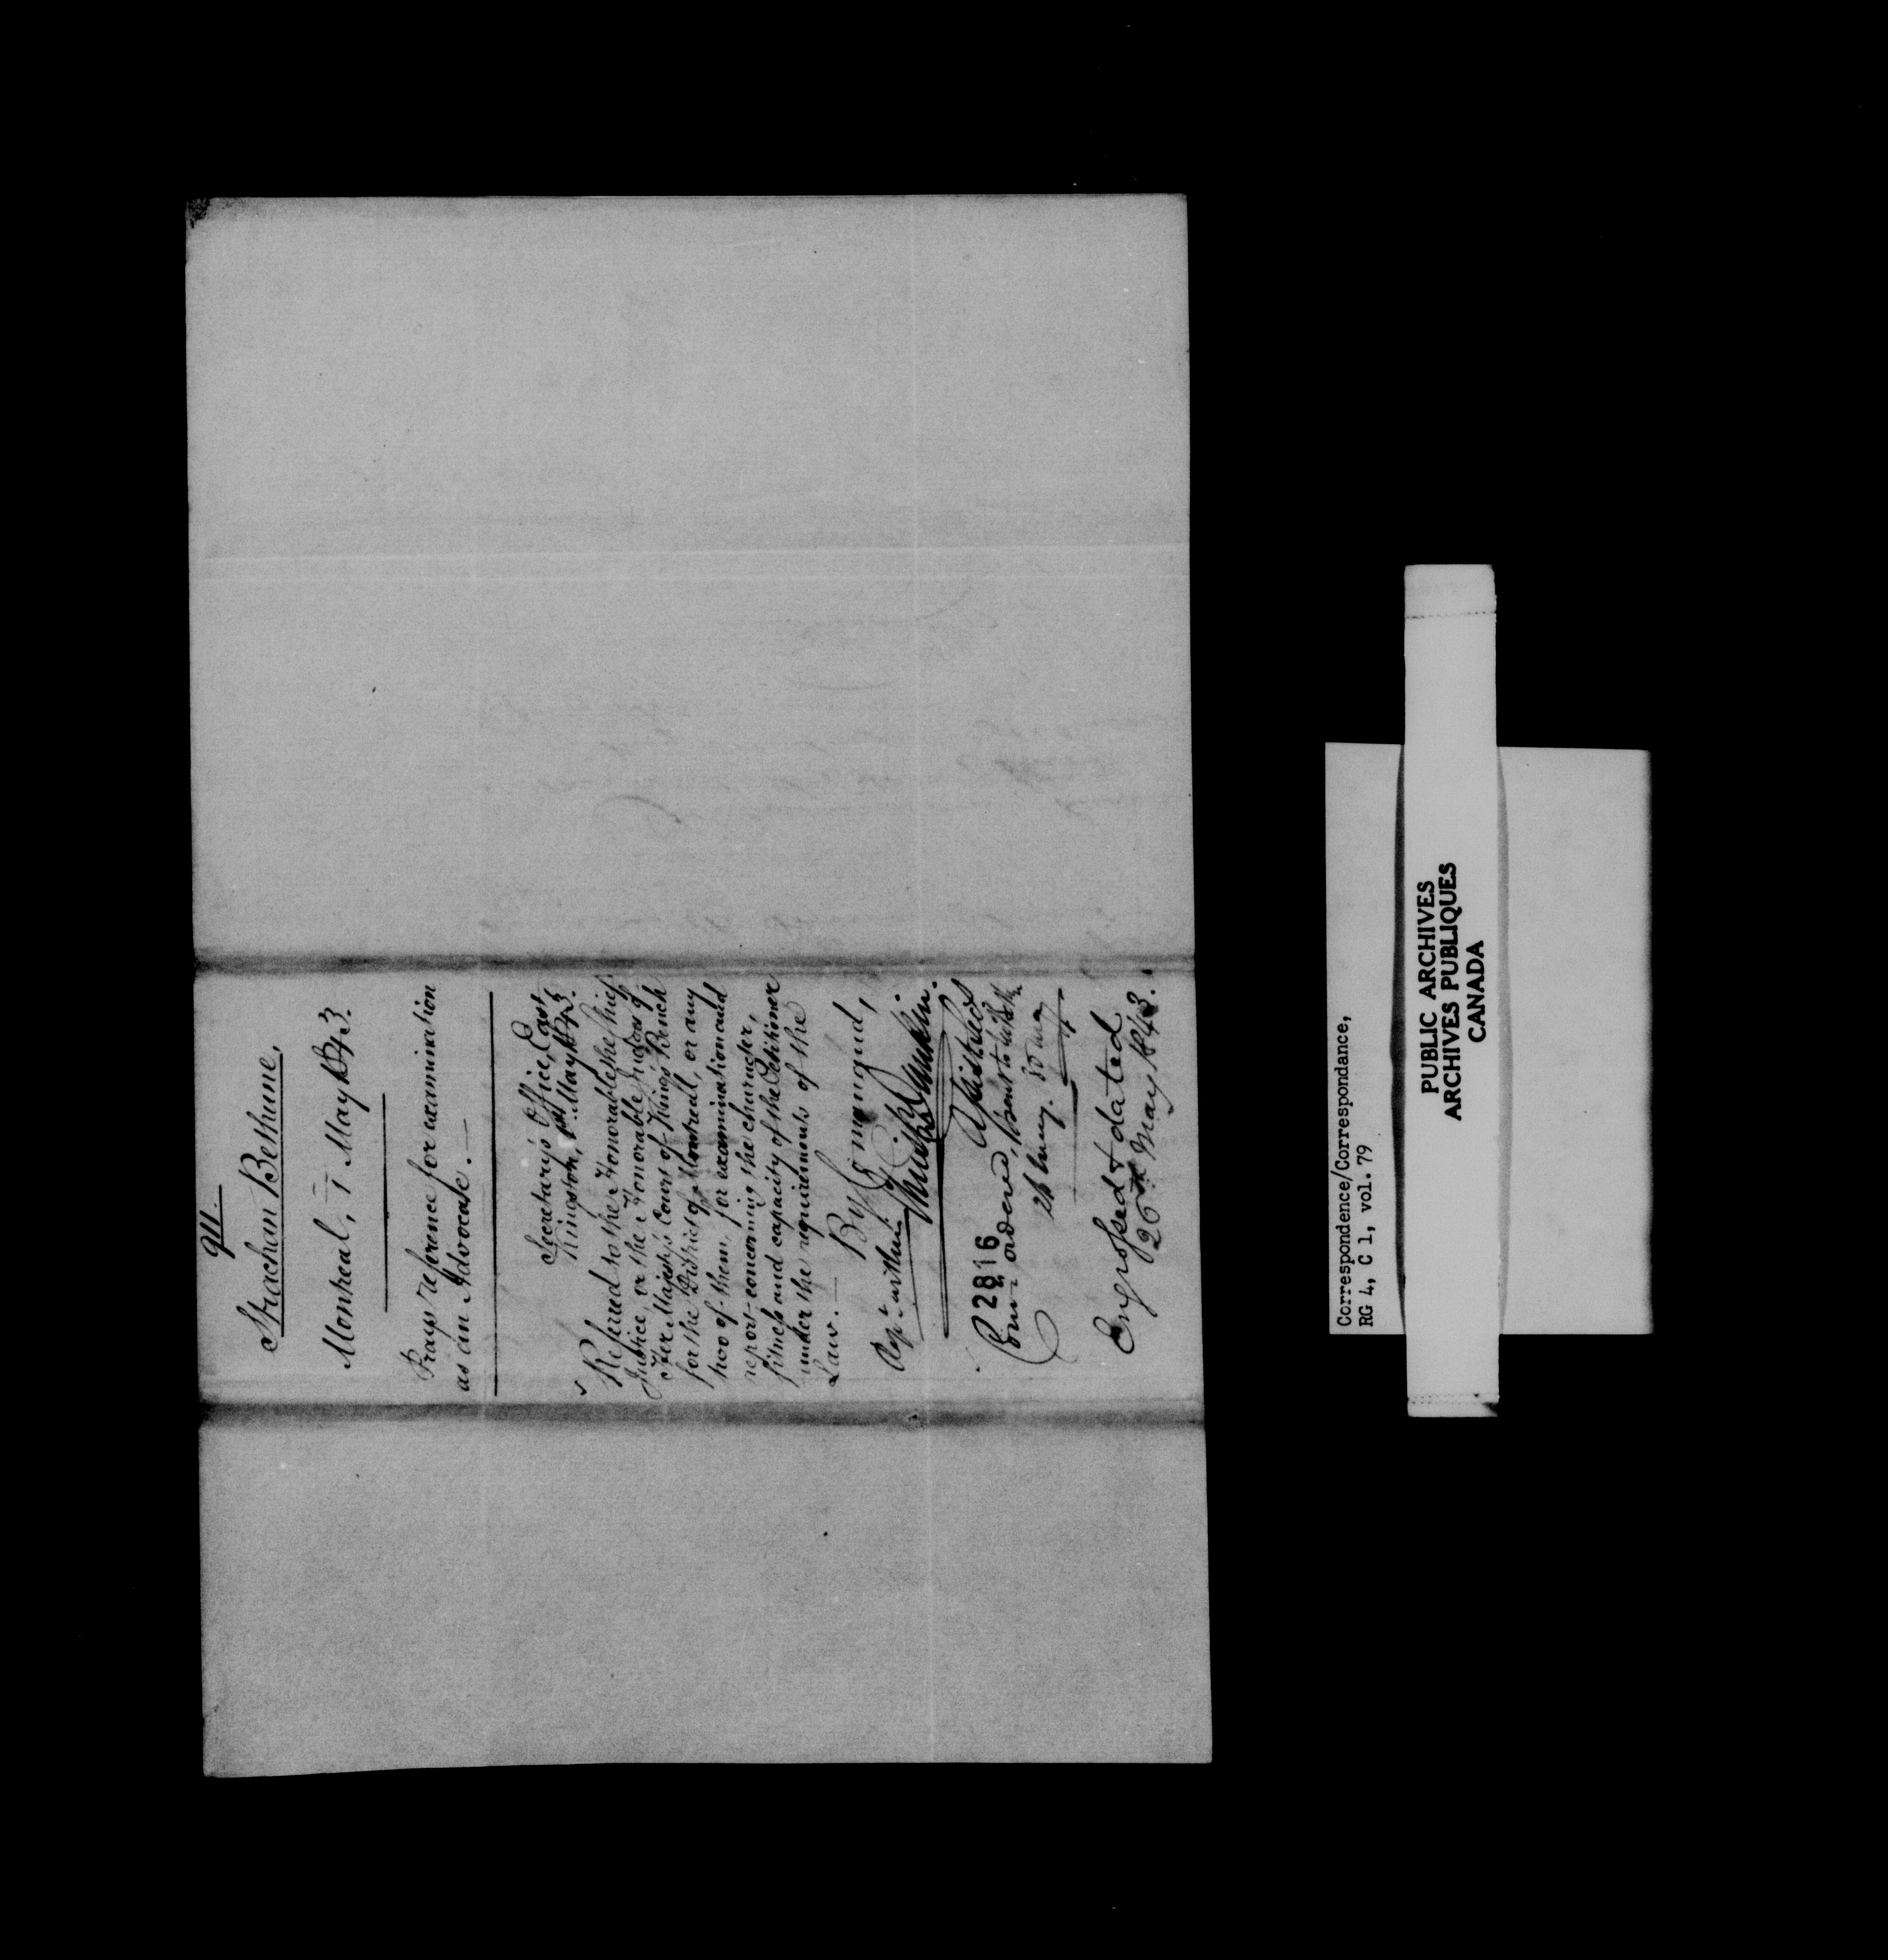 911.
Strachan Bethune,
Montreal, 1 May 1843.
Prays reference for examination
as an Advocate.—
Secretary's Office, East
Kingston, May 1843.
Referred to the Honorable the Chief
Justice, or the Honorable Justices of
Her Majesty's Court of King's Bench
for the District of Montreal, or any
two of them, for examination and
report concerning the character,
fitness and capacity of the Petitioner
under the requirements of the
Law.—
By Command,
22816
Comn ordered,
Engrossed & dated
26th May 1843.
Correspondence/Correspondance,
RG 4, C 1, vol. 79
PUBLIC ARCHIVES
ARCHIVES PUBLIQUES
CANADA